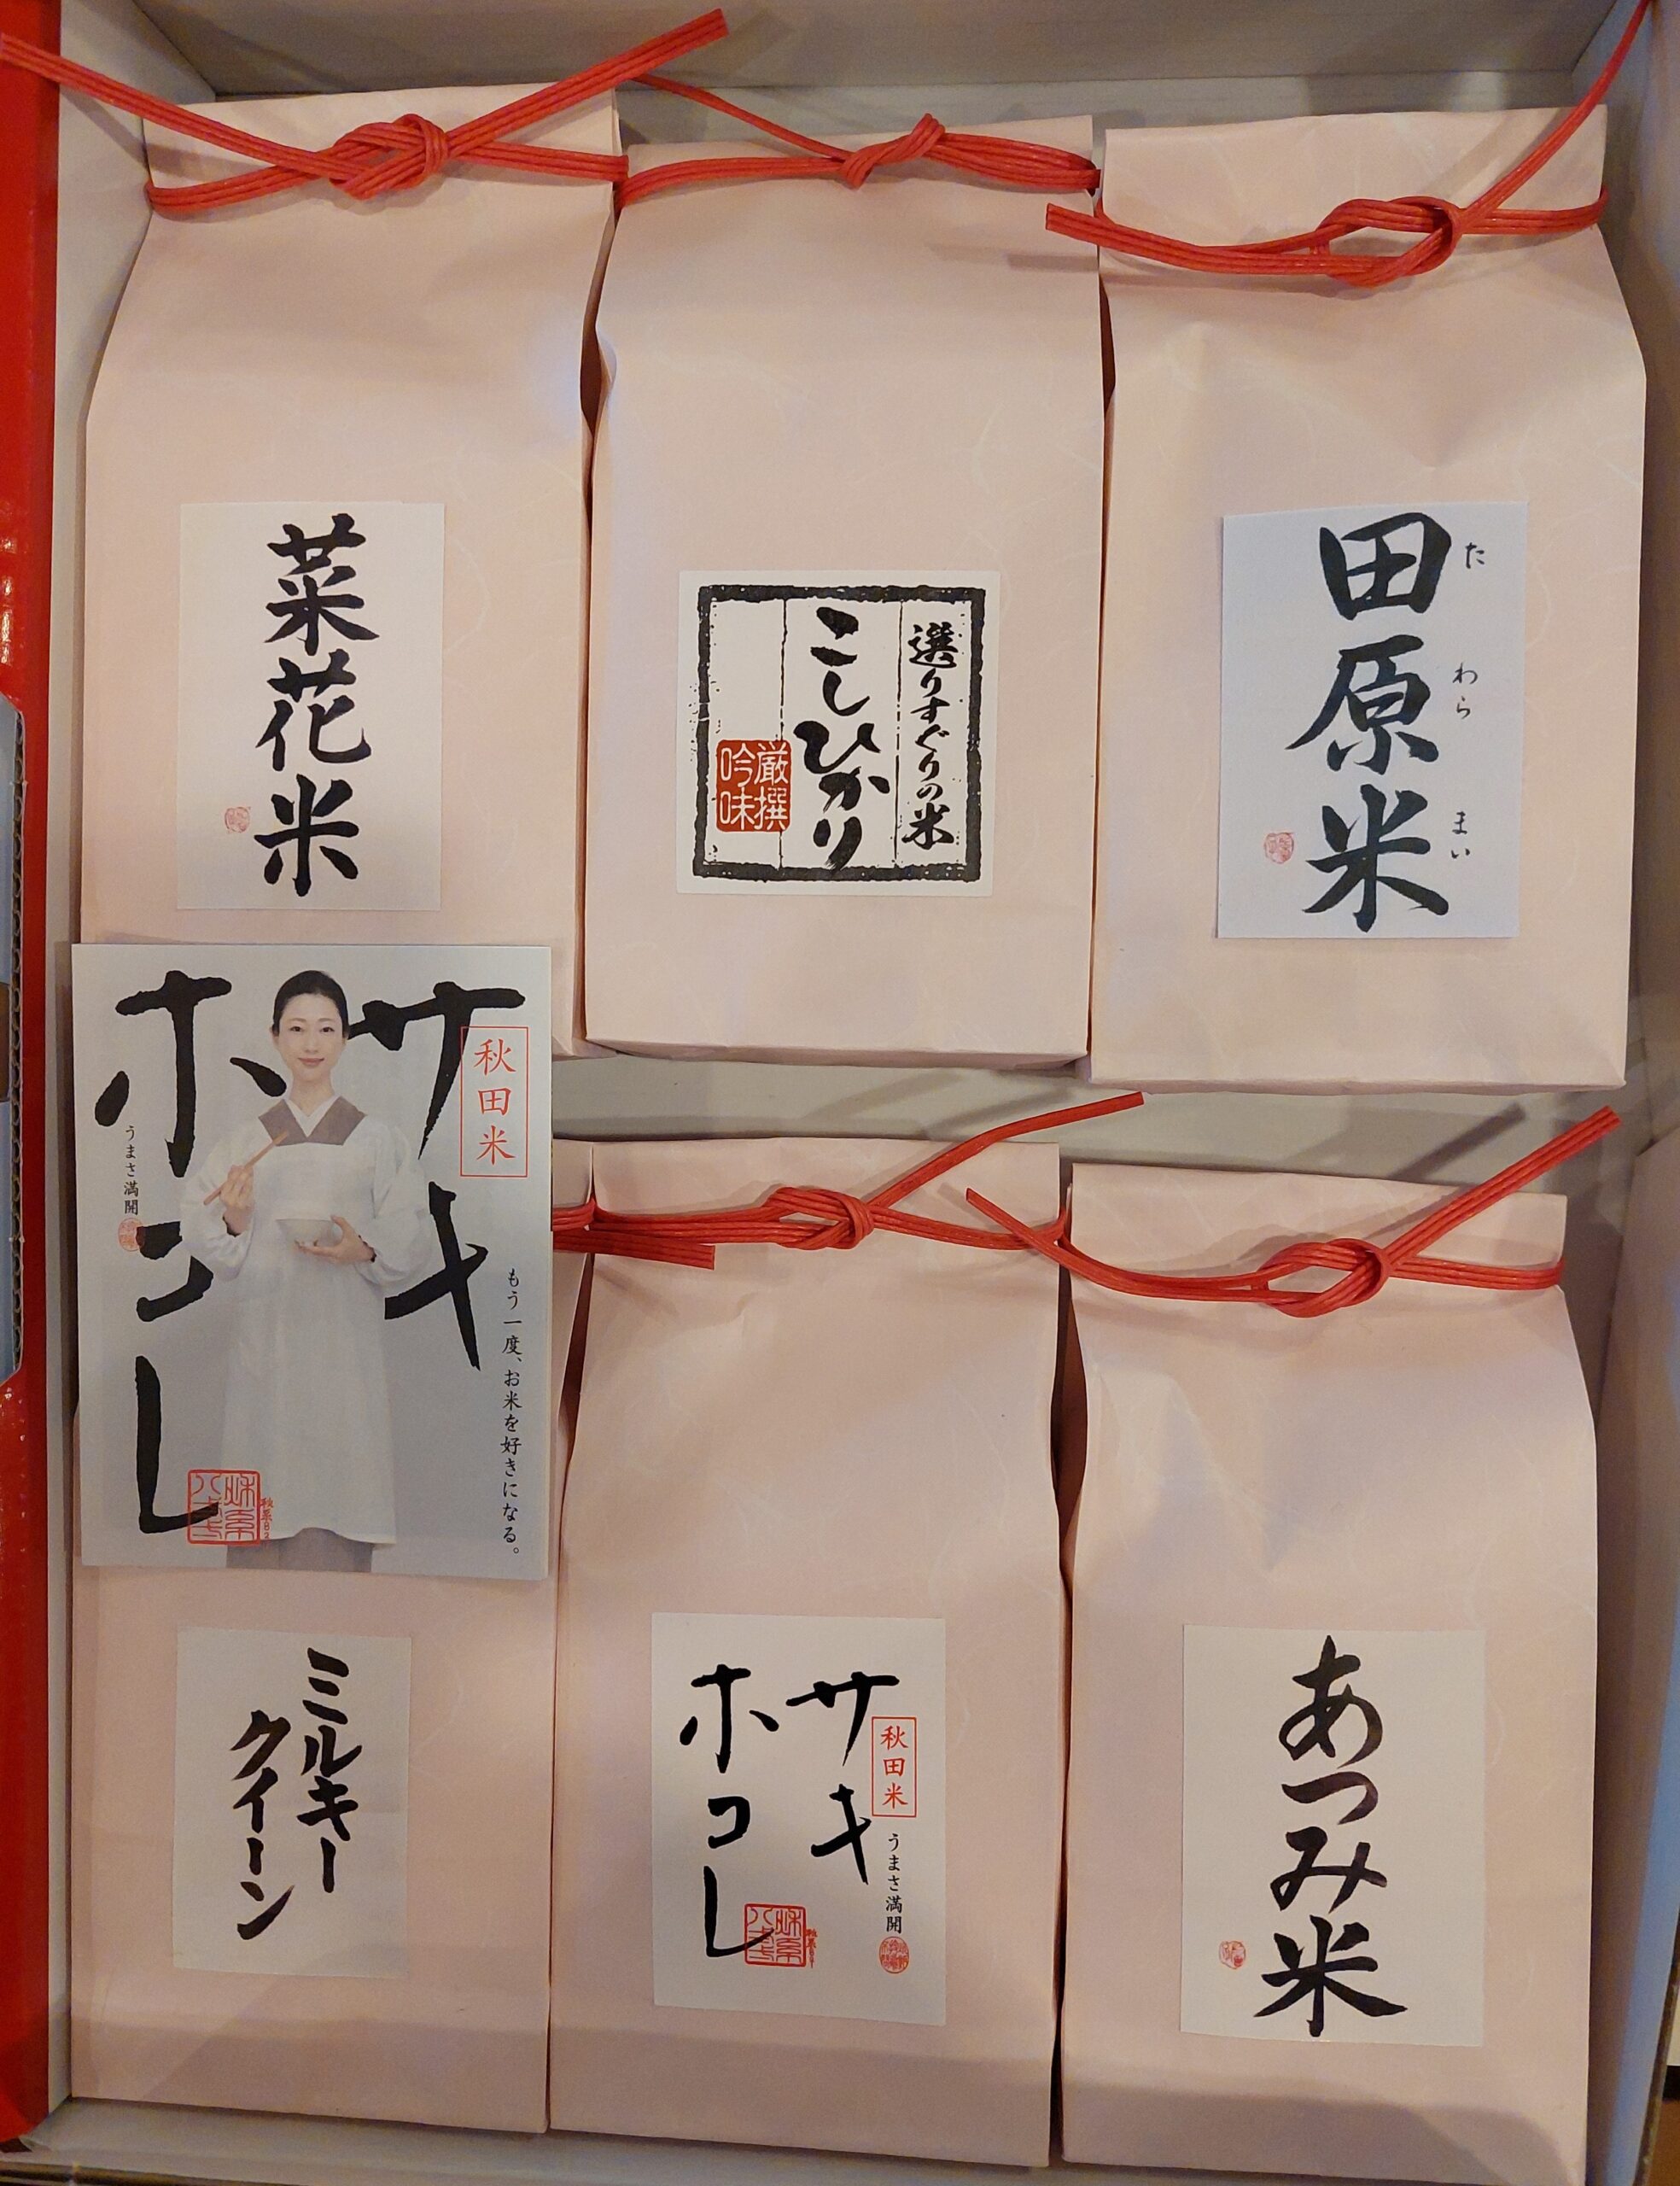 菜花米
選りすぐりの米
こしひかり
厳撰
吟味
田原米
た
わら
まい
サキ
ホコレ
秋田米
うまさ満開
もう一度、お米を好きになる。
ミルキー
クイーン
サキ
ホコレ
秋田米
うまさ満開
あつみ米